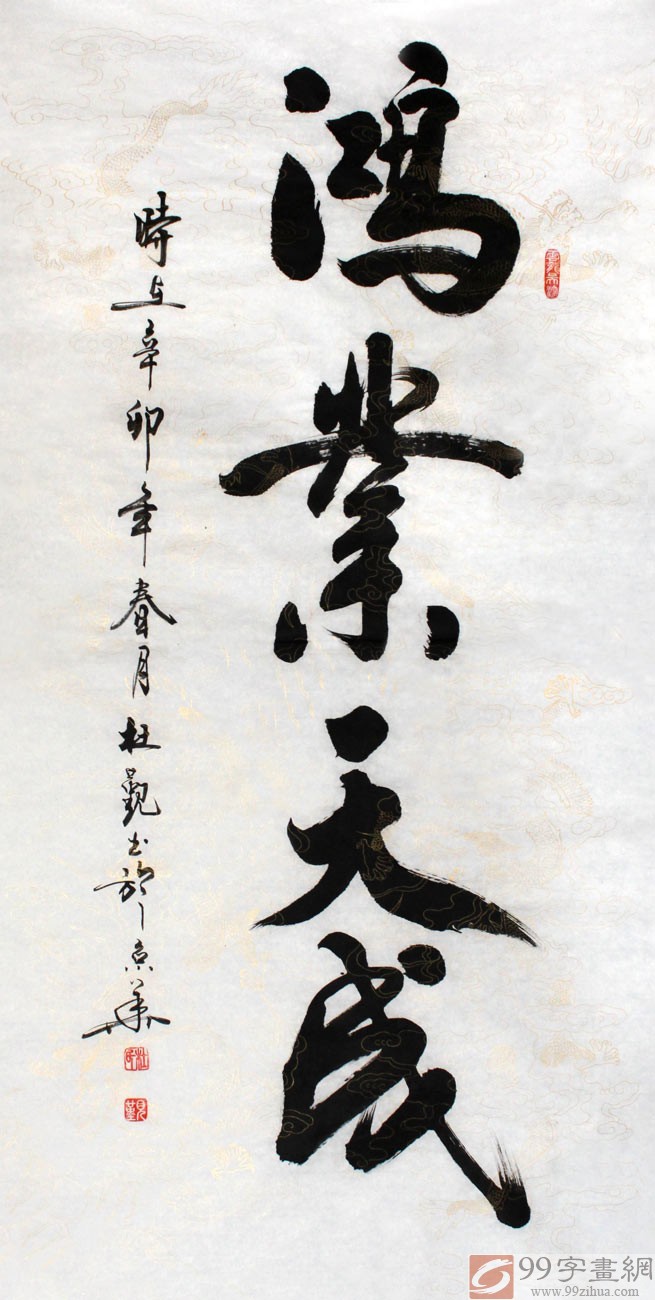 鴻業天成
時在辛卯年春月杜覲书於京華
99字畫網
www.99zihua.com